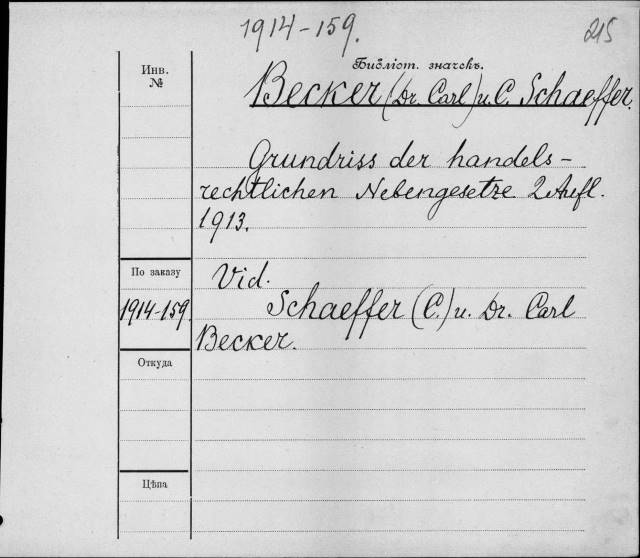 1914-159.
215
Инв.
№
Библіот. значекъ.
Becker (Dr. Carl) u. C. Schaeffer.
Grundriss der handels-
rechtlichen Nebengesetze 2 Aufl.
1913.
По заказу
Vid.
1914-159.
Schaeffer (C.) u. Dr. Carl
Becker.
Откуда
Цѣна